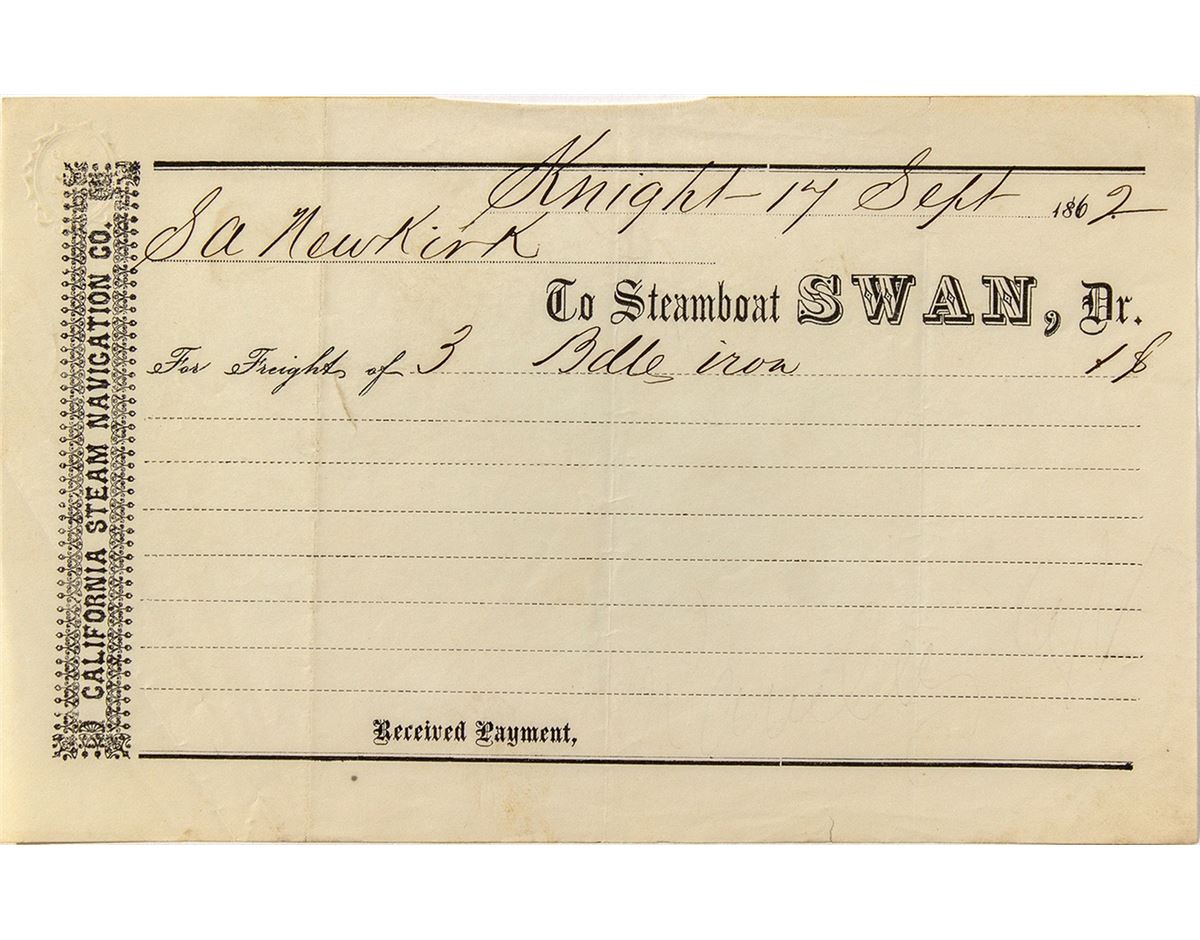 CALIFORNIA STEAM NAVIGATION CO.
Knight 17 Sept 1862
S A Newkirk
To Steamboat SWAN, Dr.
For Freight of 3 Bdle iron
Received Payment,